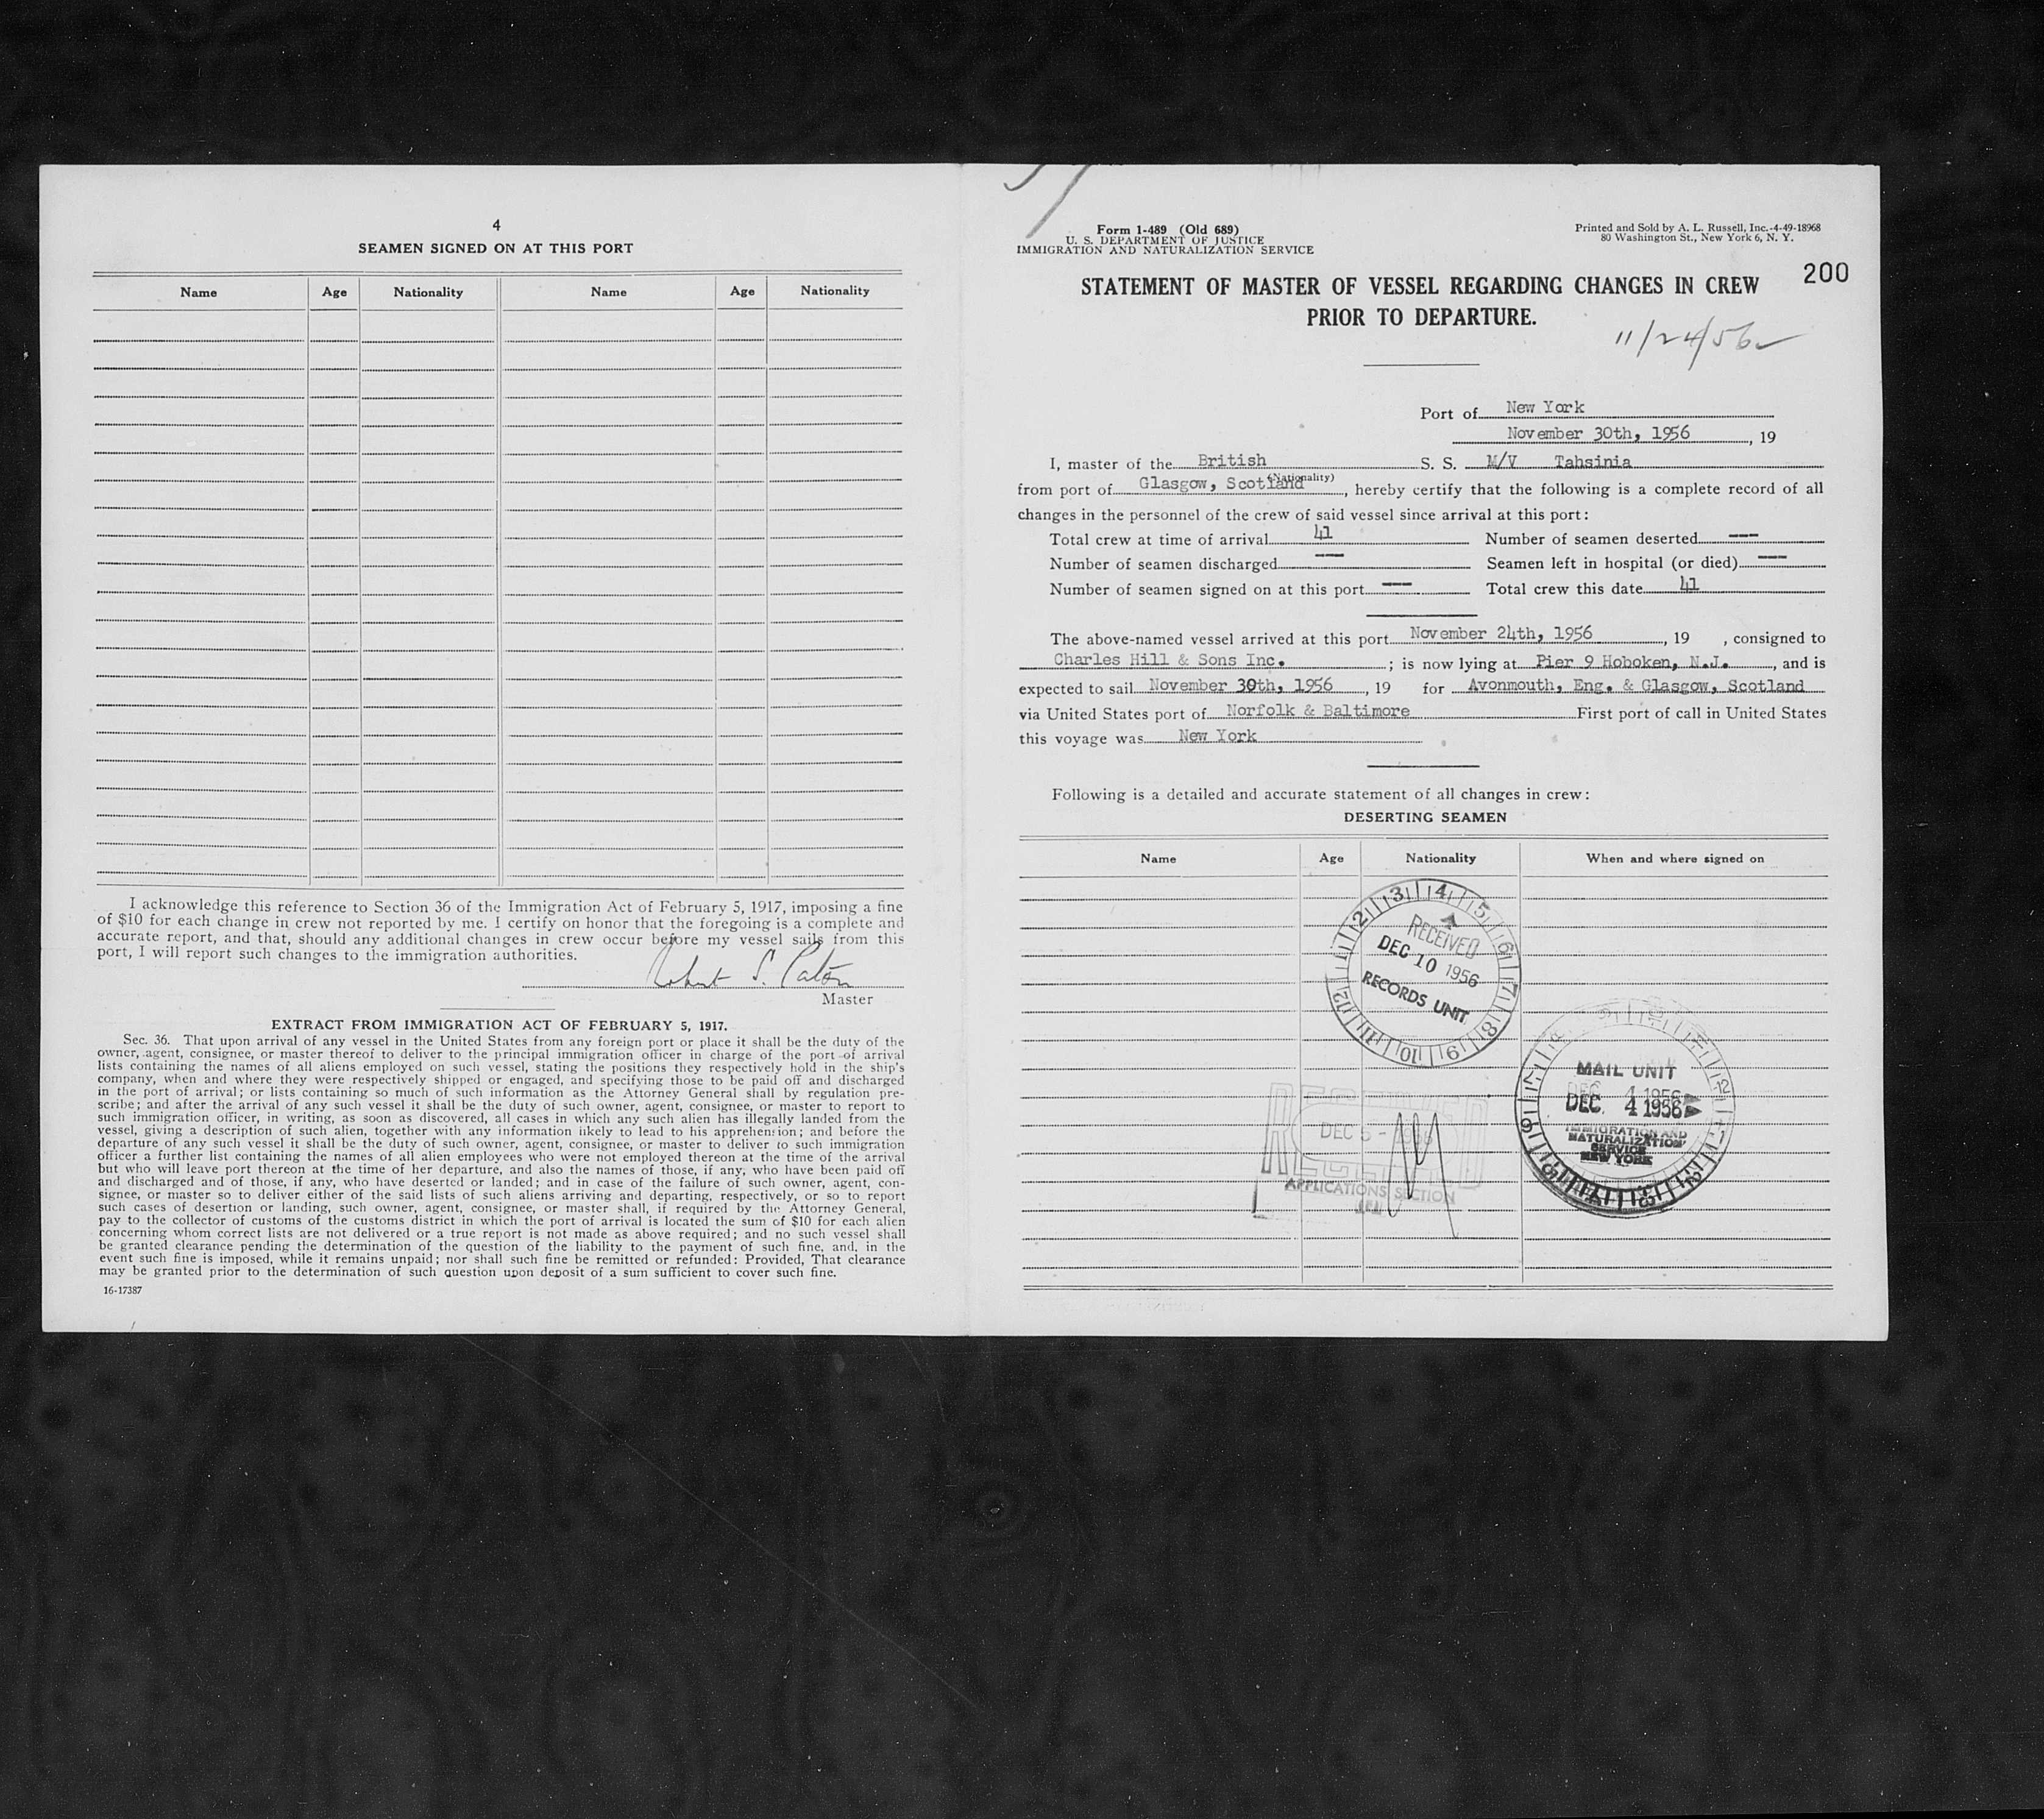 4
SEAMEN SIGNED ON AT THIS PORT
Name Age Nationality Name Age Nationality
I acknowledge this reference to Section 36 of the Immigration Act of February 5, 1917, imposing a fine
of $10 for each change in crew not reported by me. I certify on honor that the foregoing is a complete and
accurate report, and that, should any additional changes in crew occur before my vessel sails from this
port, I will report such changes to the immigration authorities.
Robert S. Paton
Master
EXTRACT FROM IMMIGRATION ACT OF FEBRUARY 5, 1917.
Sec. 36. That upon arrival of any vessel in the United States from any foreign port or place it shall be the duty of the
owner, agent, consignee, or master thereof to deliver to the principal immigration officer in charge of the port of arrival
lists containing the names of all aliens employed on such vessel, stating the positions they respectively hold in the ship's
company, when and where they were respectively shipped or engaged, and specifying those to be paid off and discharged
in the port of arrival; or lists containing so much of such information as the Attorney General shall by regulation pre-
scribe; and after the arrival of any such vessel it shall be the duty of such owner, agent, consignee, or master to report to
such immigration officer, in writing, as soon as discovered, all cases in which any such alien has illegally landed from the
vessel, giving a description of such alien, together with any information likely to lead to his apprehension; and before the
departure of any such vessel it shall be the duty of such owner, agent, consignee, or master to deliver to such immigration
officer a further list containing the names of all alien employees who were not employed thereon at the time of the arrival
but who will leave port thereon at the time of her departure, and also the names of those, if any, who have been paid off
and discharged and of those, if any, who have deserted or landed; and in case of the failure of such owner, agent, con-
signee, or master so to deliver either of the said lists of such aliens arriving and departing, respectively, or so to report
such cases of desertion or landing, such owner, agent, consignee, or master shall, if required by the Attorney General,
pay to the collector of customs of the customs district in which the port of arrival is located the sum of $10 for each alien
concerning whom correct lists are not delivered or a true report is not made as above required; and no such vessel shall
be granted clearance pending the determination of the question of the liability to the payment of such fine, and, in the
event such fine is imposed, while it remains unpaid; nor shall such fine be remitted or refunded: Provided, That clearance
may be granted prior to the determination of such question upon deposit of a sum sufficient to cover such fine.
16-17387
Form 1-489 (Old 689)
U. S. DEPARTMENT OF JUSTICE
IMMIGRATION AND NATURALIZATION SERVICE
Printed and Sold by A. L. Russell, Inc.-4-49-18968
80 Washington St., New York 6, N. Y.
200
STATEMENT OF MASTER OF VESSEL REGARDING CHANGES IN CREW
PRIOR TO DEPARTURE.
11/24/56
Port of New York
November 30th, 1956, 19
I, master of the British S. S. M/V Tahsinia
(Nationality)
from port of Glasgow, Scotland, hereby certify that the following is a complete record of all
changes in the personnel of the crew of said vessel since arrival at this port:
Total crew at time of arrival 41 Number of seamen deserted ---
Number of seamen discharged --- Seamen left in hospital (or died) ---
Number of seamen signed on at this port --- Total crew this date 41
The above-named vessel arrived at this port November 24th, 1956, 19 , consigned to
Charles Hill & Sons Inc. ; is now lying at Pier 9 Hoboken, N.J., and is
expected to sail November 30th, 1956, 19 for Avonmouth, Eng. & Glasgow, Scotland
via United States port of Norfolk & Baltimore First port of call in United States
this voyage was New York
Following is a detailed and accurate statement of all changes in crew:
DESERTING SEAMEN
Name Age Nationality When and where signed on
1 2 3 4 5 6 7 8 9 10 11 12
RECEIVED
DEC 10 1956
RECORDS UNIT
MAIL UNIT
DEC 4 1956
IMMIGRATION AND
NATURALIZATION
SERVICE
NEW YORK
RECEIVED
DEC 5 - 1956
APPLICATIONS SECTION